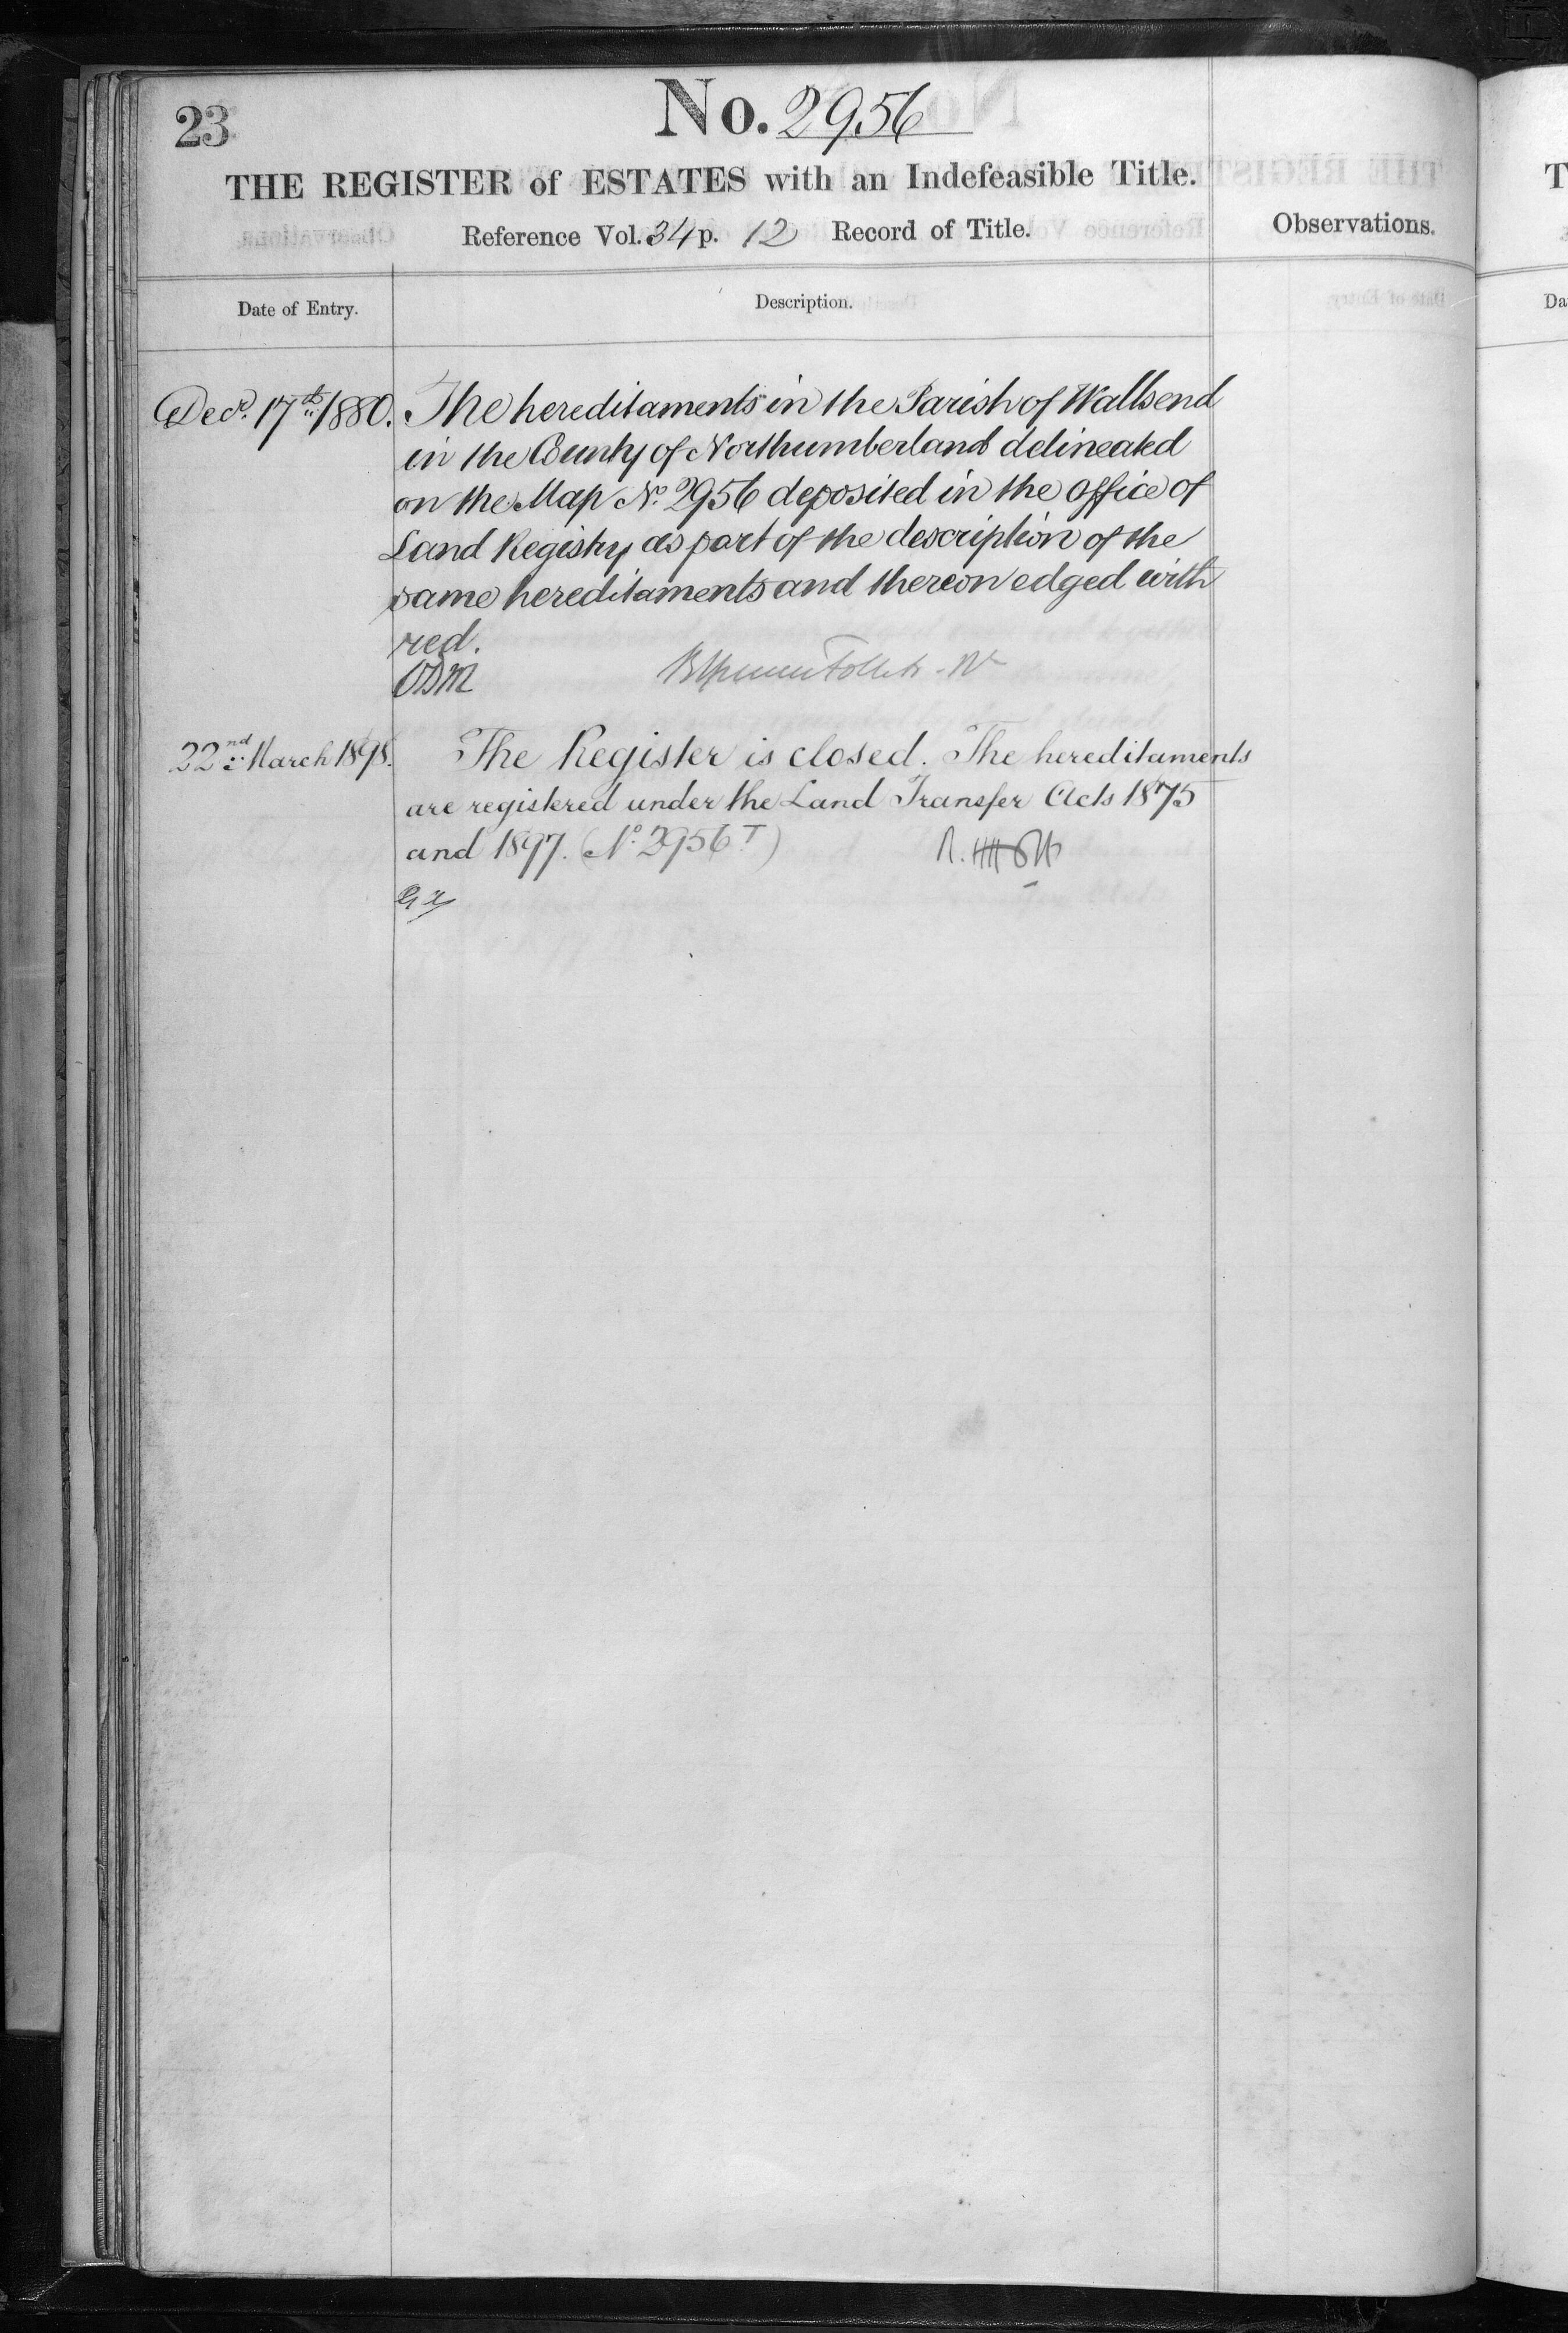 23
No. 2956
THE REGISTER of ESTATES with an Indefeasible Title.
Reference Vol. 34 p. 12 Record of Title.
Observations.
Date of Entry.
Description.
Decr. 17th 1880. The hereditaments in the Parish of Wallsend
in the County of Northumberland delineated
on the Map No. 2956 deposited in the office of
Land Registry as part of the description of the
same hereditaments and thereon edged with
red.
22nd March 1898. The Register is closed. The hereditaments
are registered under the Land Transfer Acts 1875
and 1897. (No. 2956 T)